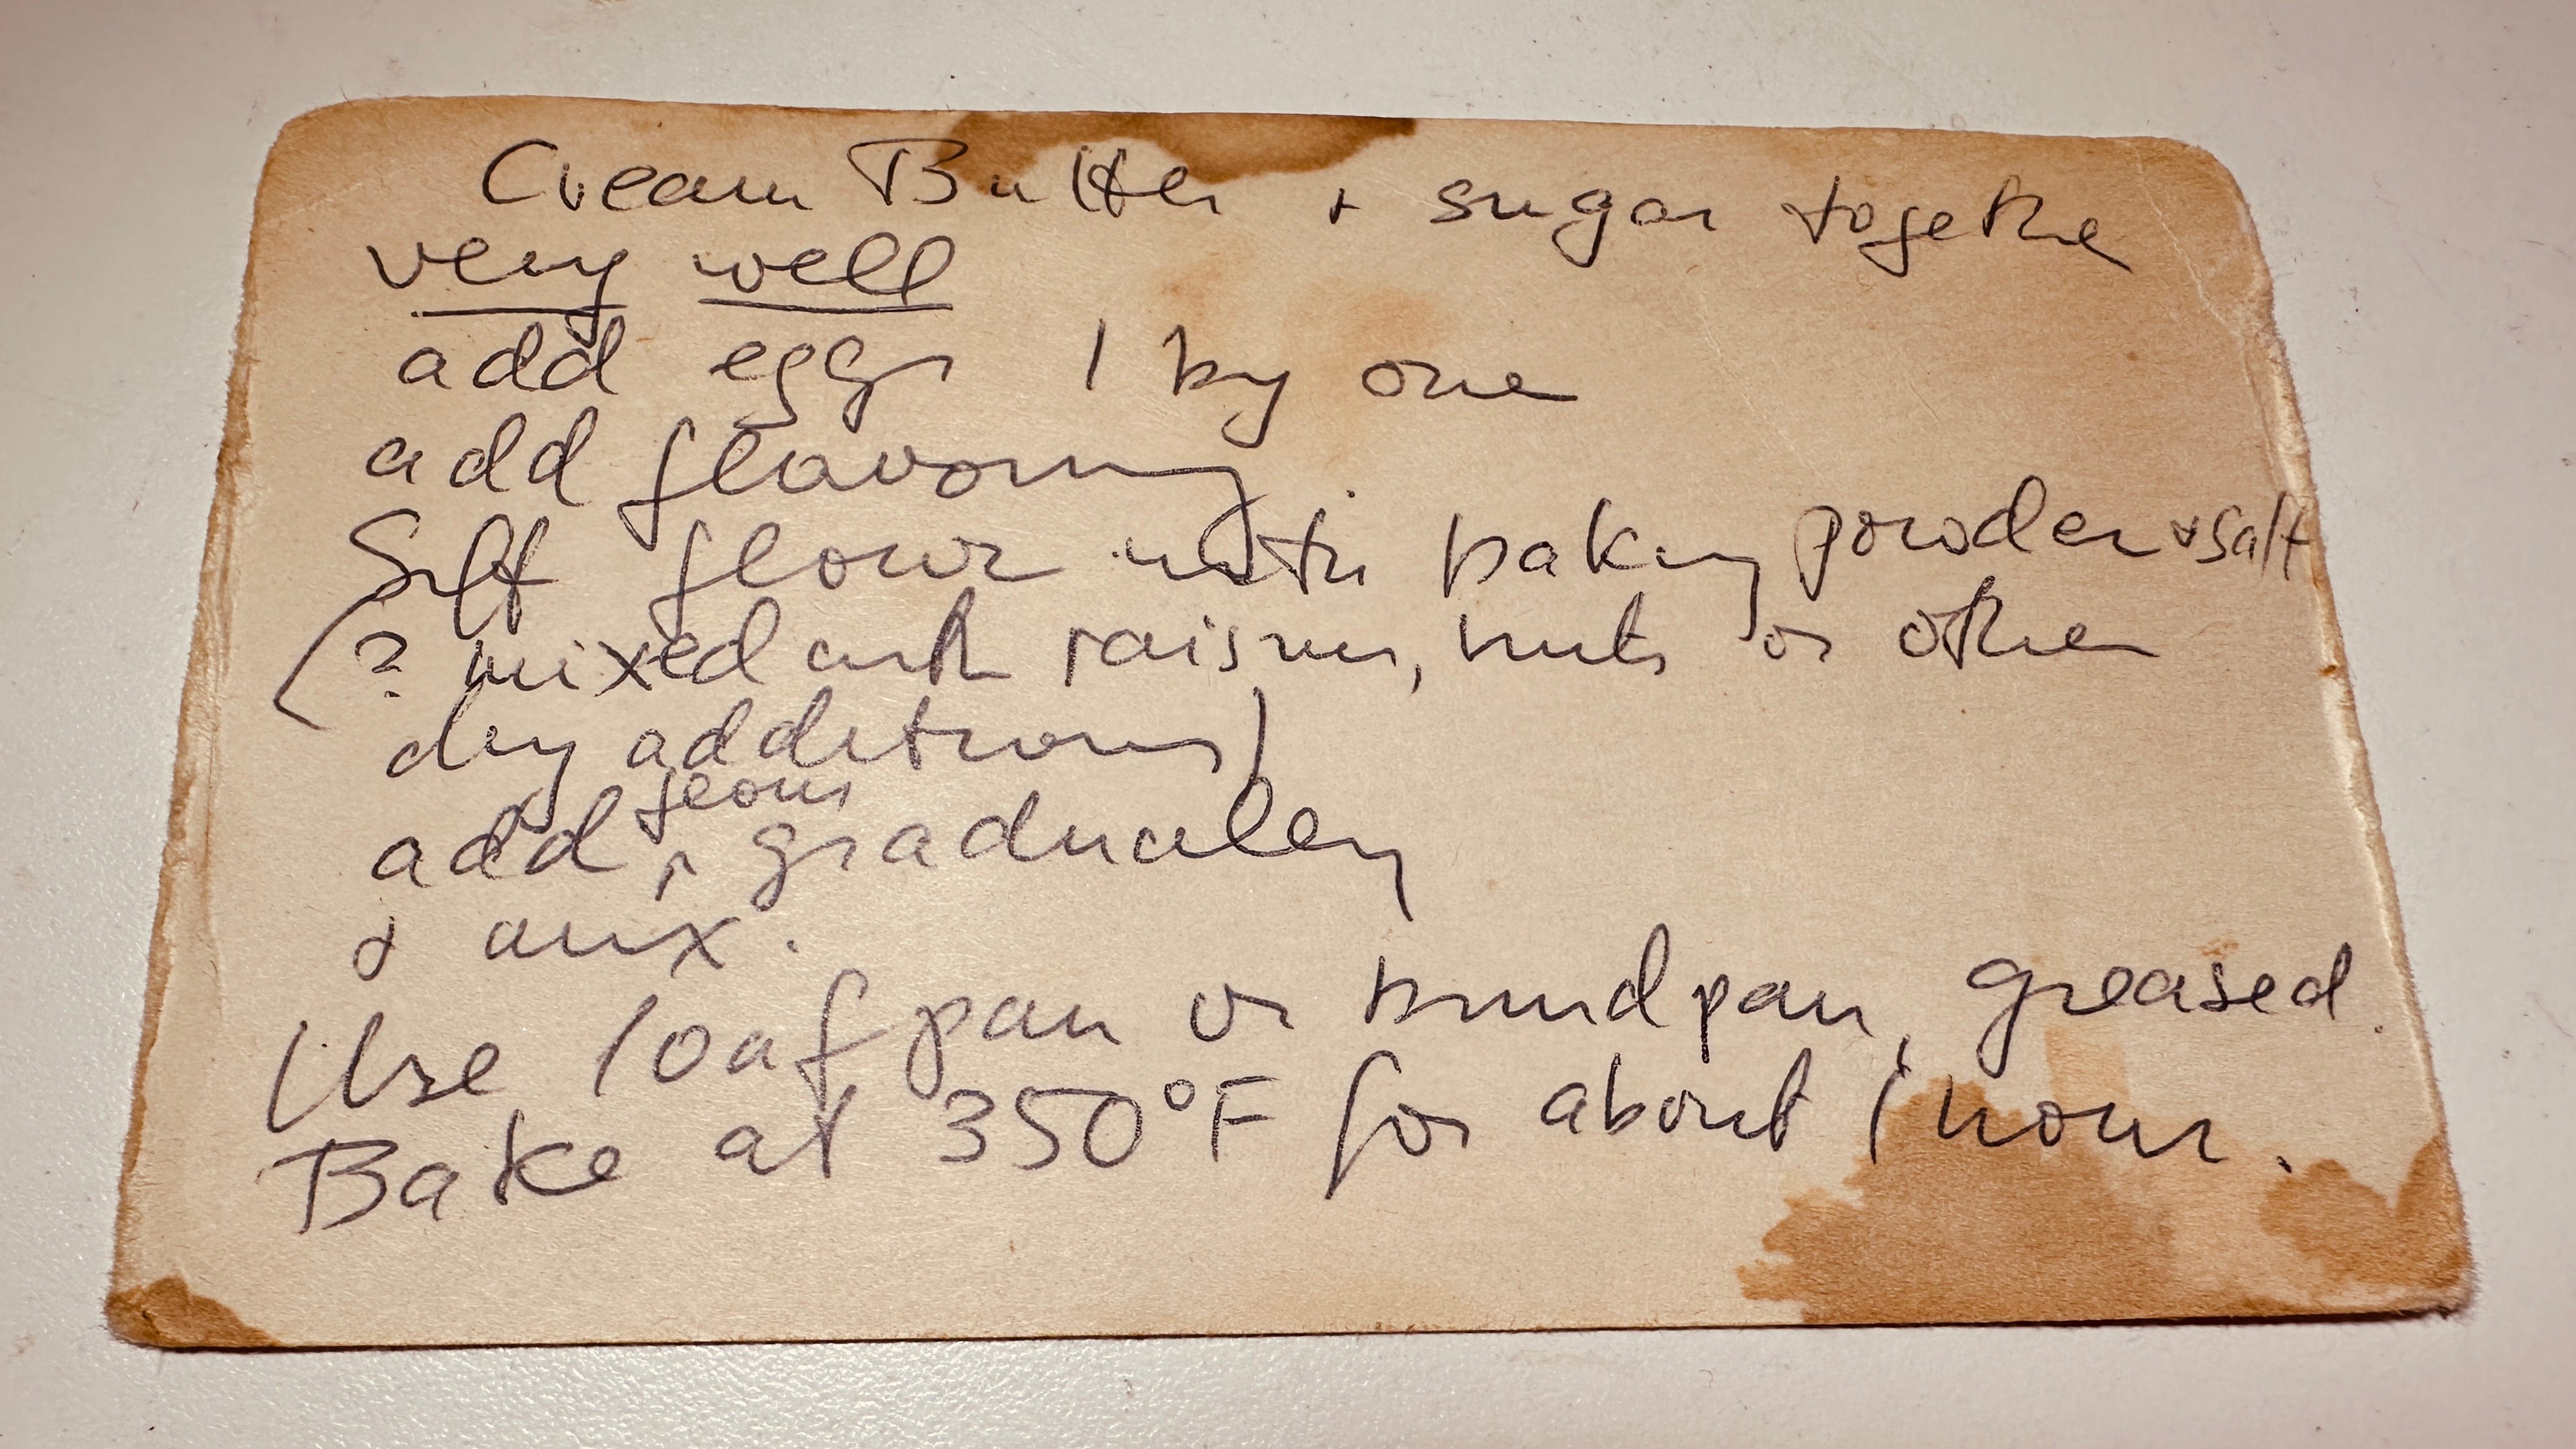 Cream Butter + sugar together
very well
add eggs 1 by one
add flavoring
Sift flour with baking powder + salt
(? mixed with raisins, nuts or other
dry additions)
add flour gradually
& mix.
Use loaf pan or bundpan, greased.
Bake at 350°F for about 1 hour.